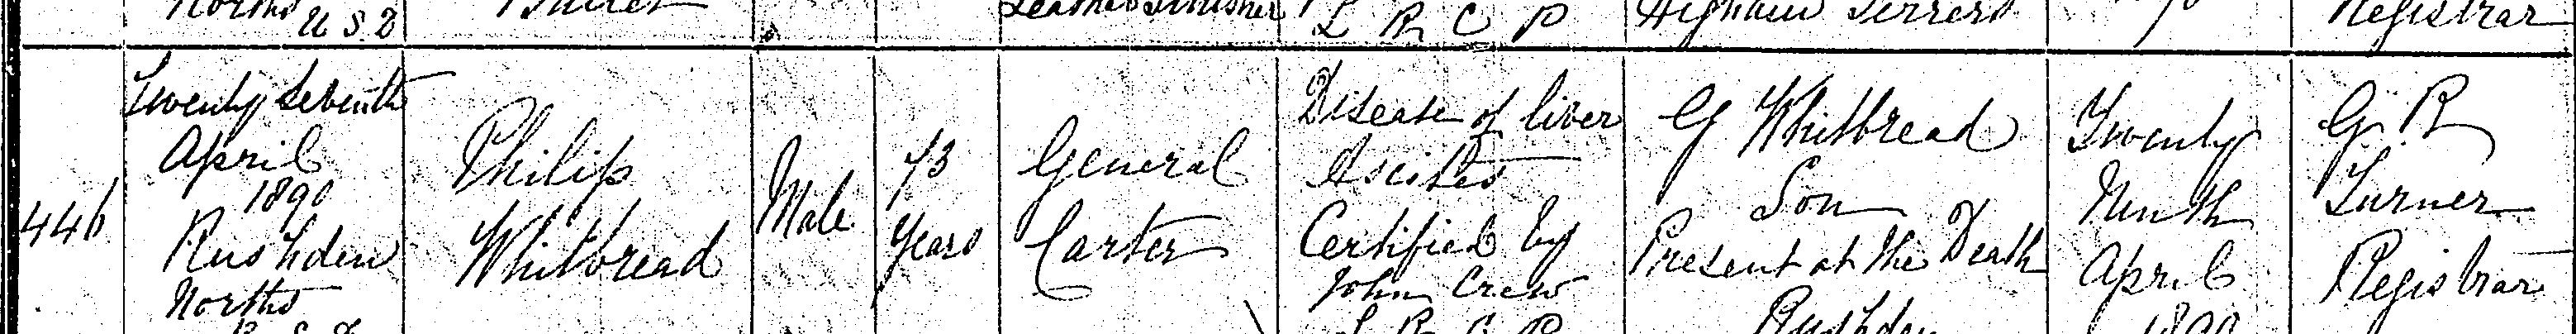 Norths
U S D
Leather Finisher
L R C P
Higham Ferrers
Registrar
446
Twenty Seventh
April
1890
Rushden
Norths
Philip
Whitbread
Male
73
Years
General
Carter
Disease of liver
Ascites
Certified by
John Crew
L R C P
G Whitbread
Son
Present at the Death
Rushden
Twenty
Ninth
April
1890
G. R
Turner
Registrar